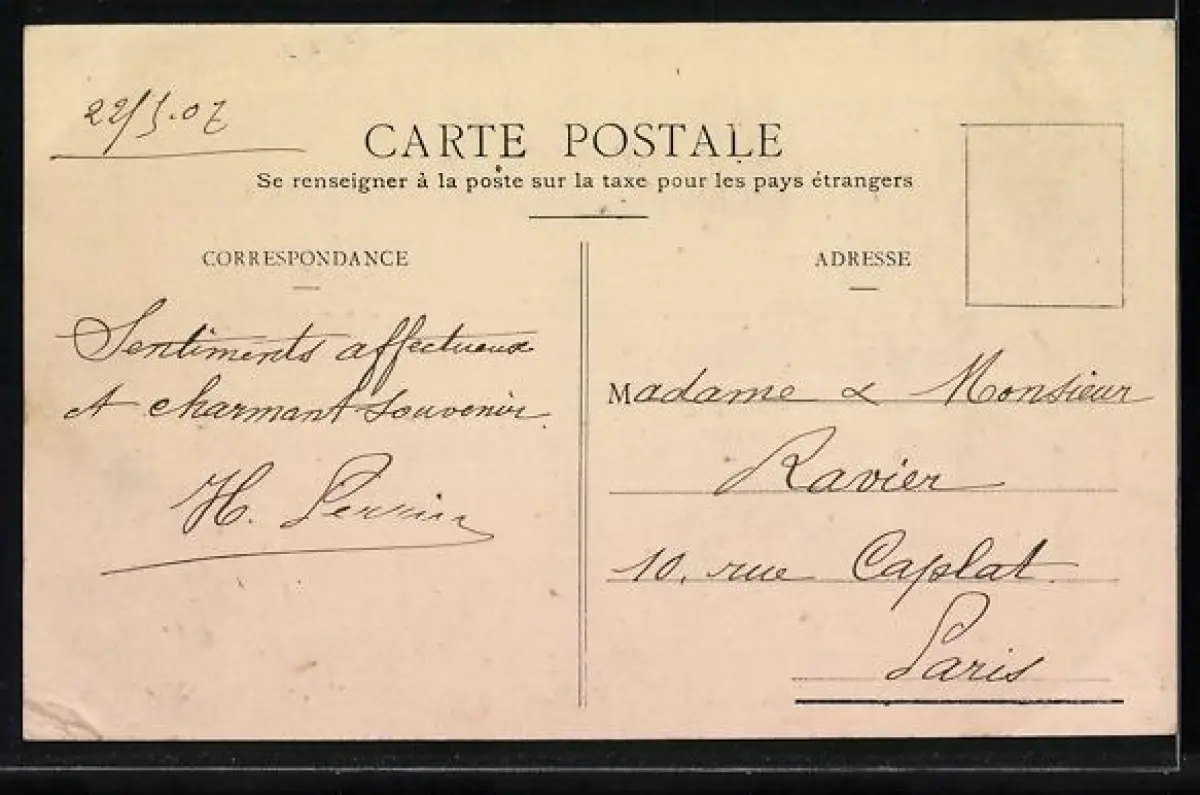 22/5.07
CARTE POSTALE
Se renseigner à la poste sur la taxe pour les pays étrangers
CORRESPONDANCE
Sentiments affectueux
et charmant souvenir.
H. Perrin
ADRESSE
Madame & Monsieur
Ravier
10, rue Caplat
Paris